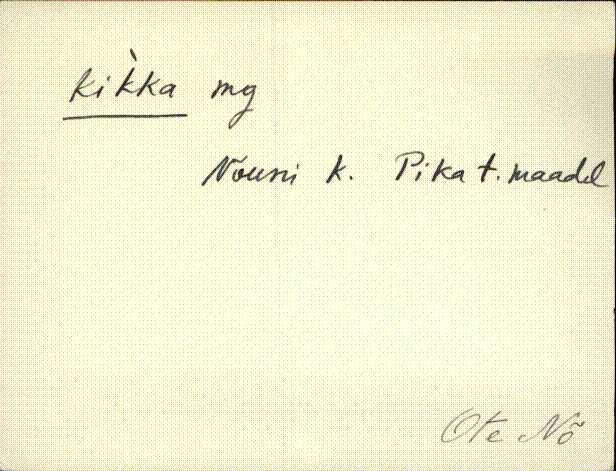 kik̀ka mg
Nõuni k. Pika t. maadel
Ote Nõ